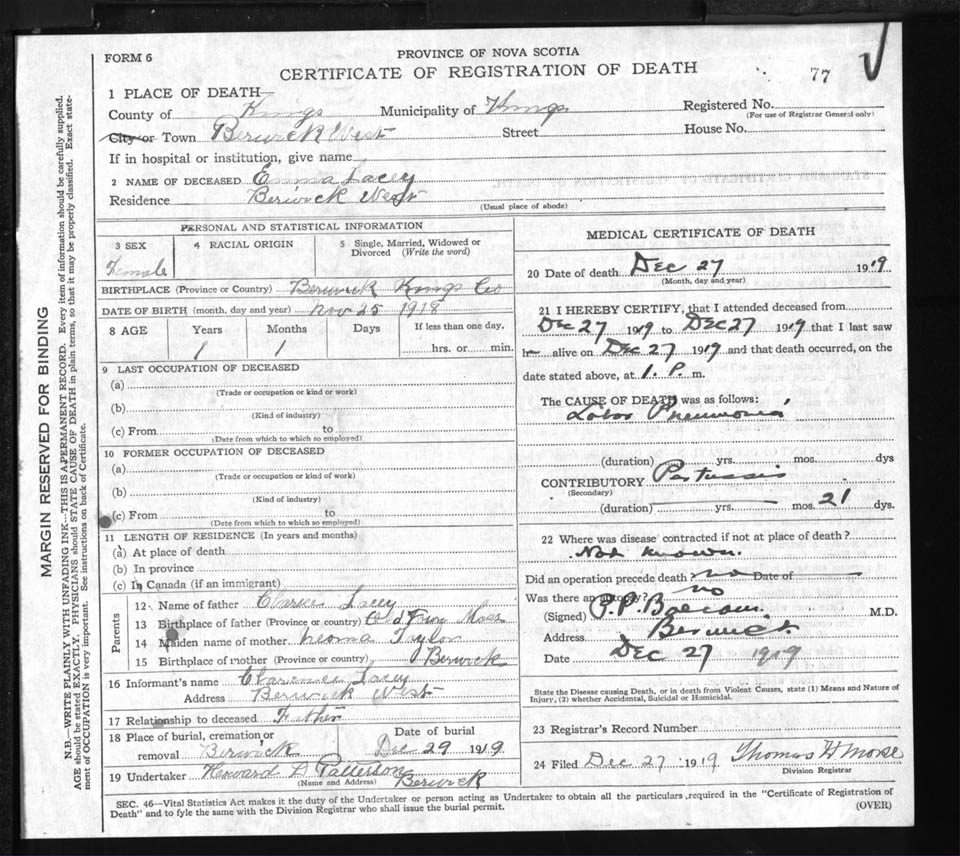 FORM 6
PROVINCE OF NOVA SCOTIA
CERTIFICATE OF REGISTRATION OF DEATH
77
1 PLACE OF DEATH—
County of Kings Municipality of Kings Registered No.
(For use of Registrar General only)
City or Town Berwick West Street House No.
If in hospital or institution, give name
2 NAME OF DECEASED Emma Lacey
Residence Berwick West
(Usual place of abode)
PERSONAL AND STATISTICAL INFORMATION
3 SEX 4 RACIAL ORIGIN 5 Single, Married, Widowed or
Divorced (Write the word)
Female
BIRTHPLACE (Province or Country) Berwick Kings Co
DATE OF BIRTH (month, day and year) Nov 25 1918
8 AGE Years Months Days If less than one day,
1 1 hrs. or min.
9 LAST OCCUPATION OF DECEASED
(a)
(Trade or occupation or kind or work)
(b)
(Kind of industry)
(c) From to
(Date from which to which so employed)
10 FORMER OCCUPATION OF DECEASED
(a)
(Trade or occupation or kind of work)
(b)
(Kind of industry)
(c) From to
(Date from which to which so employed)
11 LENGTH OF RESIDENCE (In years and months)
(a) At place of death
(b) In province
(c) In Canada (if an immigrant)
Parents
12 Name of father Lacey
13 Birthplace of father (Province or country) Mass
14 Maiden name of mother Taylor
15 Birthplace of mother (Province or country) Berwick
16 Informant's name Clarence Lacey
Address Berwick West
17 Relationship to deceased Father
18 Place of burial, cremation or Date of burial
removal Berwick Dec 29 1919
19 Undertaker Howard D Patterson
(Name and Address) Berwick
MEDICAL CERTIFICATE OF DEATH
20 Date of death Dec 27 1919
(Month, day and year)
21 I HEREBY CERTIFY, that I attended deceased from
Dec 27 1919 to Dec 27 1919 that I last saw
h alive on Dec 27 1919 and that death occurred, on the
date stated above, at 1. P. m.
The CAUSE OF DEATH was as follows:
Lobar Pneumonia
(duration) yrs. mos. dys
CONTRIBUTORY Pertussis
(Secondary)
(duration) yrs. mos. 21 dys.
22 Where was disease contracted if not at place of death?
Not known.
Did an operation precede death? no Date of
Was there an autopsy? no
(Signed) M.D.
Address Berwick.
Date Dec 27 1919
State the Disease causing Death, or in death from Violent Causes, state (1) Means and Nature of
Injury, (2) whether Accidental, Suicidal or Homicidal.
23 Registrar's Record Number
24 Filed Dec 27 1919 Thomas H Morse
Division Registrar
SEC. 46—Vital Statistics Act makes it the duty of the Undertaker or person acting as Undertaker to obtain all the particulars required in the "Certificate of Registration of
Death" and to fyle the same with the Division Registrar who shall issue the burial permit.
(OVER)
MARGIN RESERVED FOR BINDING
N.B.—WRITE PLAINLY WITH UNFADING INK—THIS IS A PERMANENT RECORD. Every item of information should be carefully supplied.
AGE should be stated EXACTLY. PHYSICIANS should STATE CAUSE OF DEATH in plain terms, so that it may be properly classified. Exact state-
ment of OCCUPATION is very important. See instructions on back of Certificate.